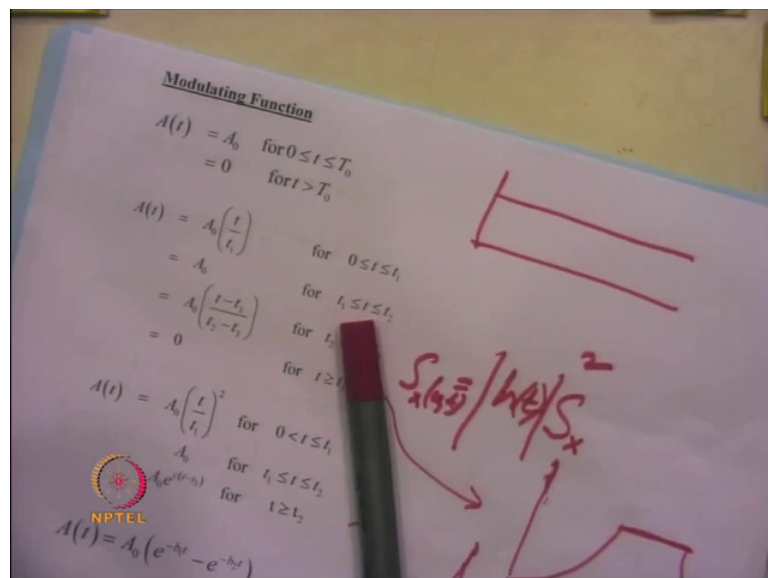 Modulating Function
A(t) = A₀ for 0 ≤ t ≤ T₀
= 0 for t > T₀
A(t) = A₀(t/t₁) for 0 ≤ t ≤ t₁
= A₀ for t₁ ≤ t ≤ t₂
= A₀((t-t₃)/(t₂-t₃)) for t₂
= 0 for t ≥ t
A(t) = A₀(t/t₁)² for 0 < t ≤ t₁
A₀ for t₁ ≤ t ≤ t₂
for t ≥ t₂
A(t) = A₀(e^{-b₁t} - e^{-b₂t})
= |h(t)|² Sₓ
NPTEL